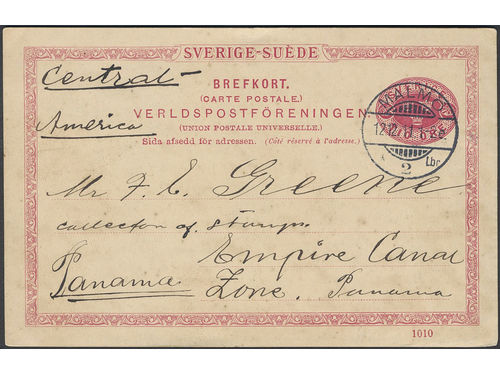 SVERIGE-SUÈDE
Central-
BREFKORT.
(CARTE POSTALE.)
VERLDSPOSTFÖRENINGEN
America
(UNION POSTALE UNIVERSELLE.)
Sida afsedd för adressen. (Côté réservé à l'adresse.)
MALMÖ
2
Lbr
Mr F. E. Greene
collection of stamps
Empire Canal
Panama
Zone, Panama
1010